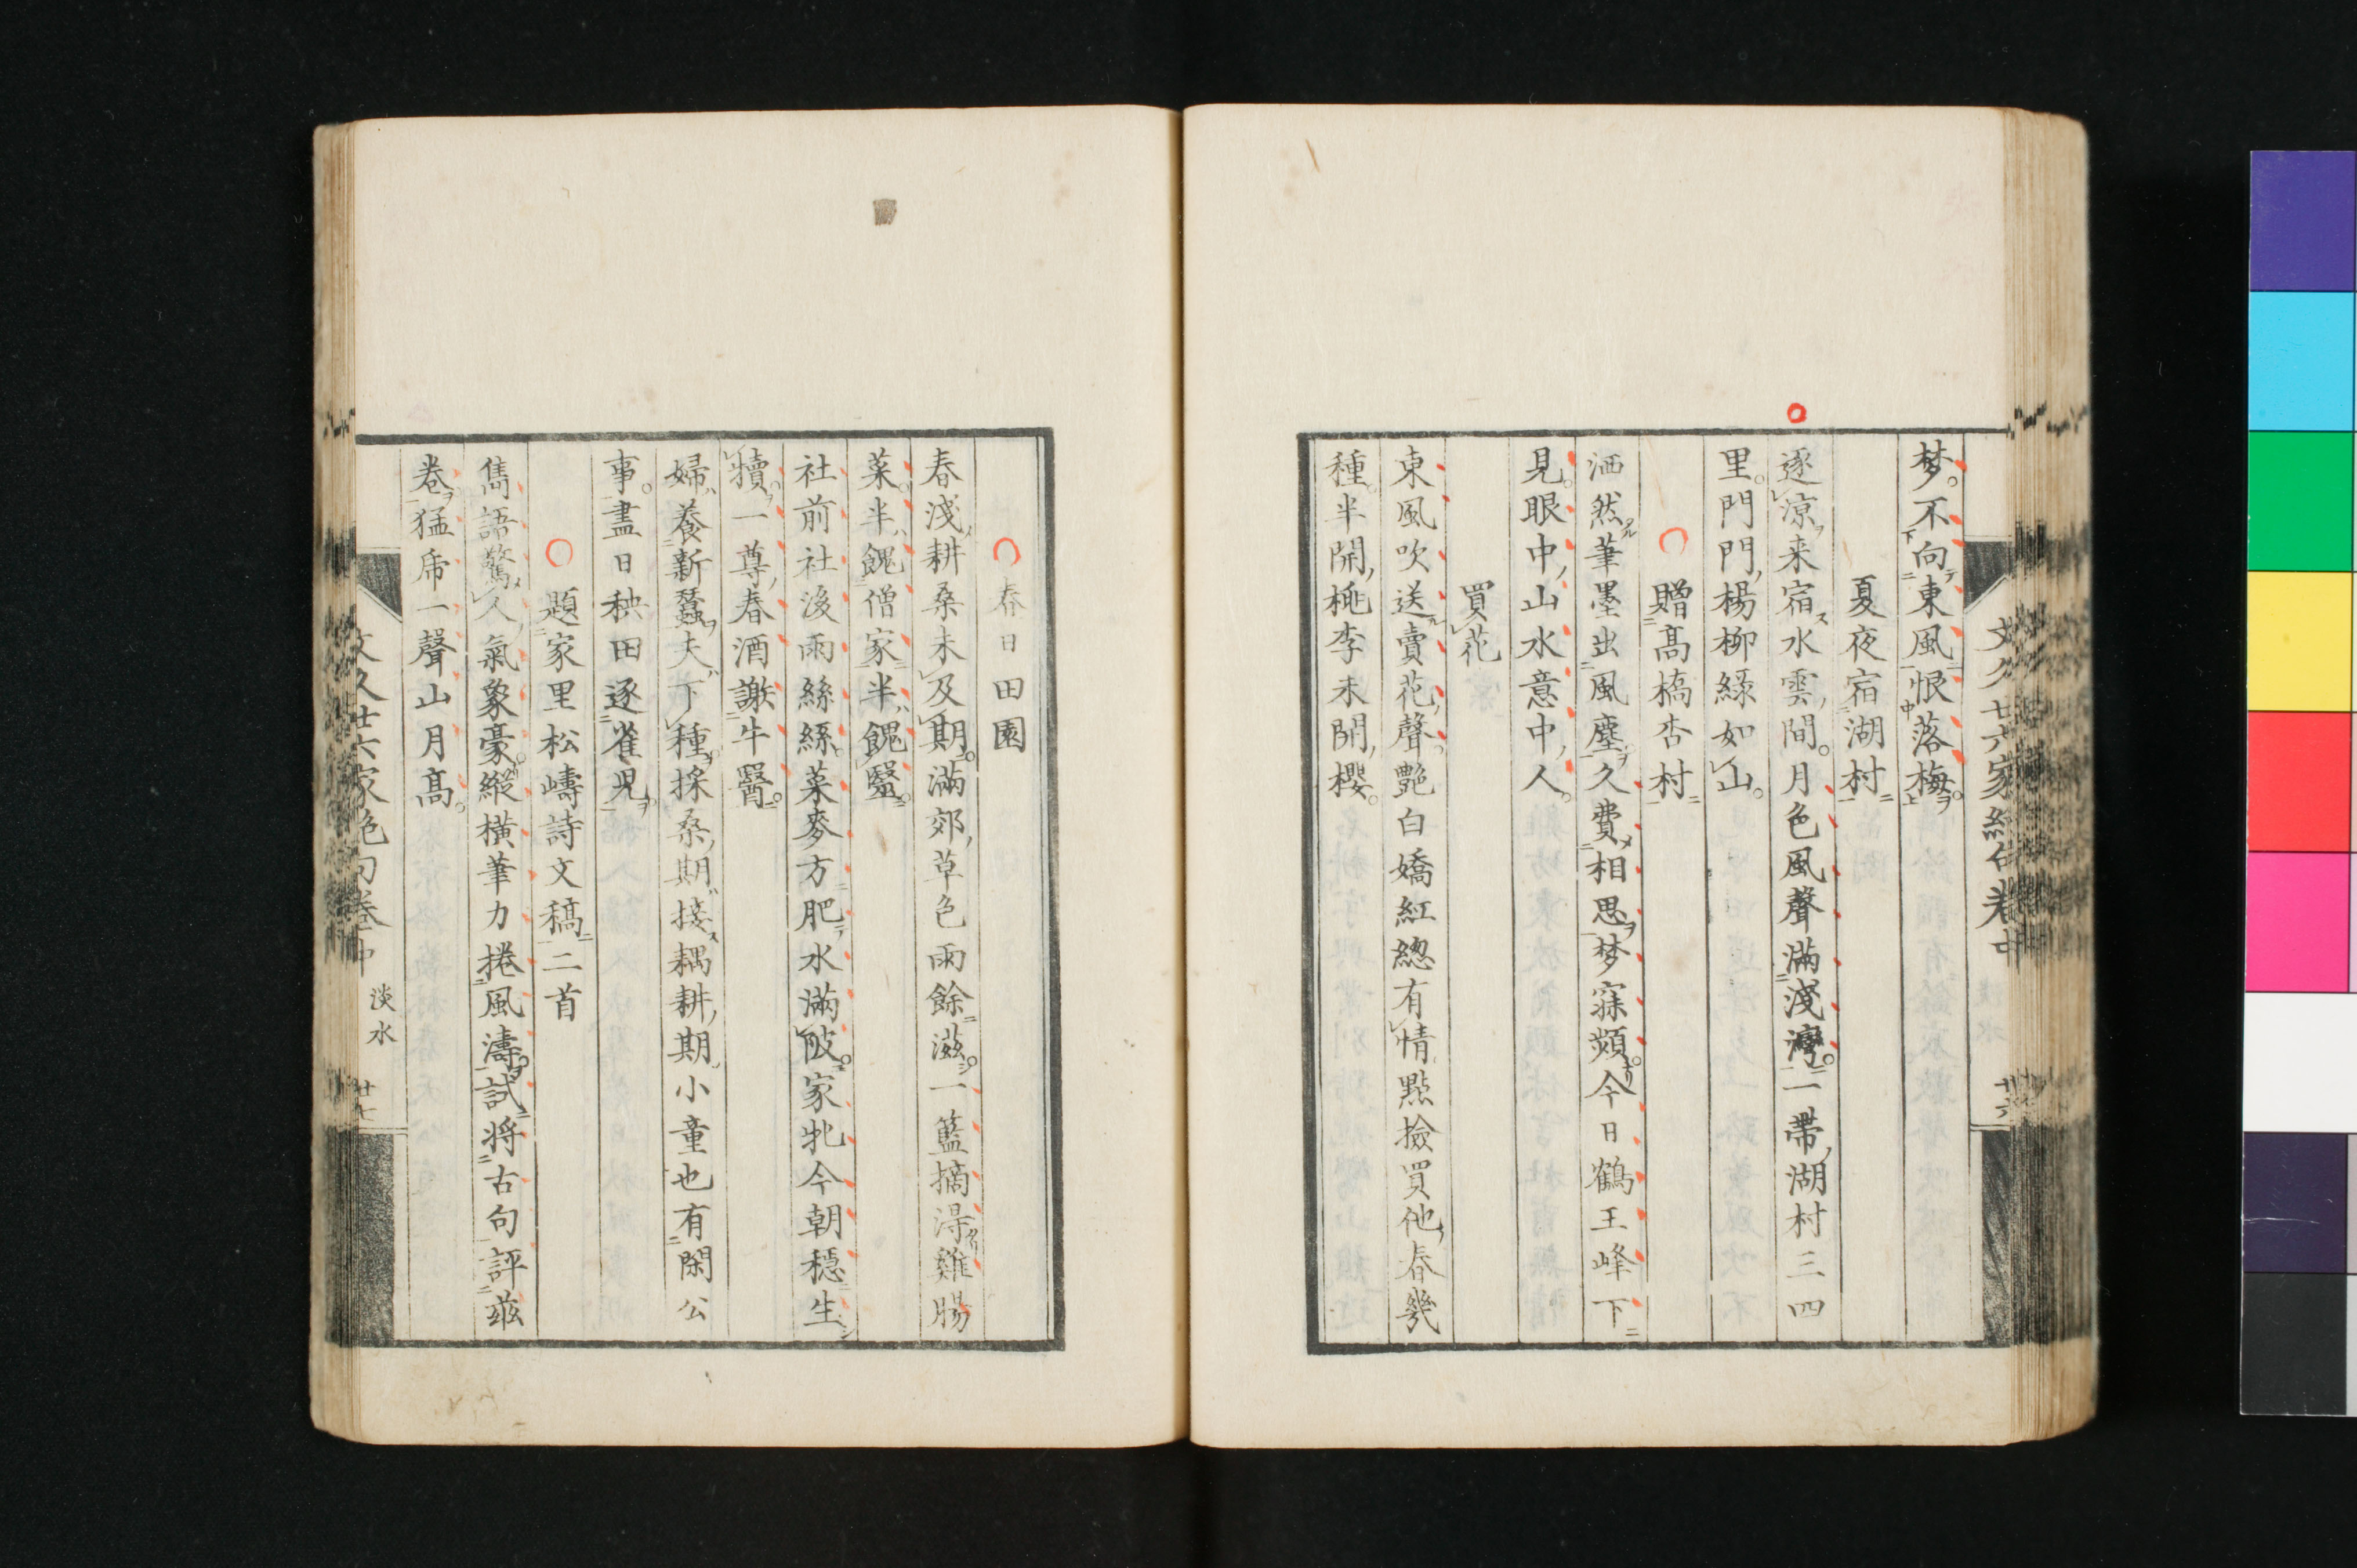 夢不向東風恨落梅
夏夜宿湖村
逐涼来宿水雲間月色風聲滿淺灣一帶湖村三四
里門門楊柳緑如山
贈髙橋杏村
洒然筆墨出風塵久費相思夢寐頻今日鶴王峰下
見眼中山水意中人
買花
東風吹送賣花聲艷白嬌紅總有情點撿買他春幾
種半開桃李未開櫻
文久廿六家絶句卷中
廿六
春日田園
春淺耕桑未及期滿郊草色雨餘滋一籃摘得雞腸
菜半餽僧家半餽毉
社前社後雨絲絲菜麥方肥水滿陂家牝今朝穏生
犢一尊春酒謝牛醫
婦養新蠶夫下種採桑期接耦耕期小童也有閑公
事盡日秧田逐雀児
題家里松嶹詩文稿二首
雋語驚人氣象豪縦橫筆力捲風濤試将古句評茲
卷猛乕一聲山月髙
文久廿六家絶句卷中
淡水
廿七